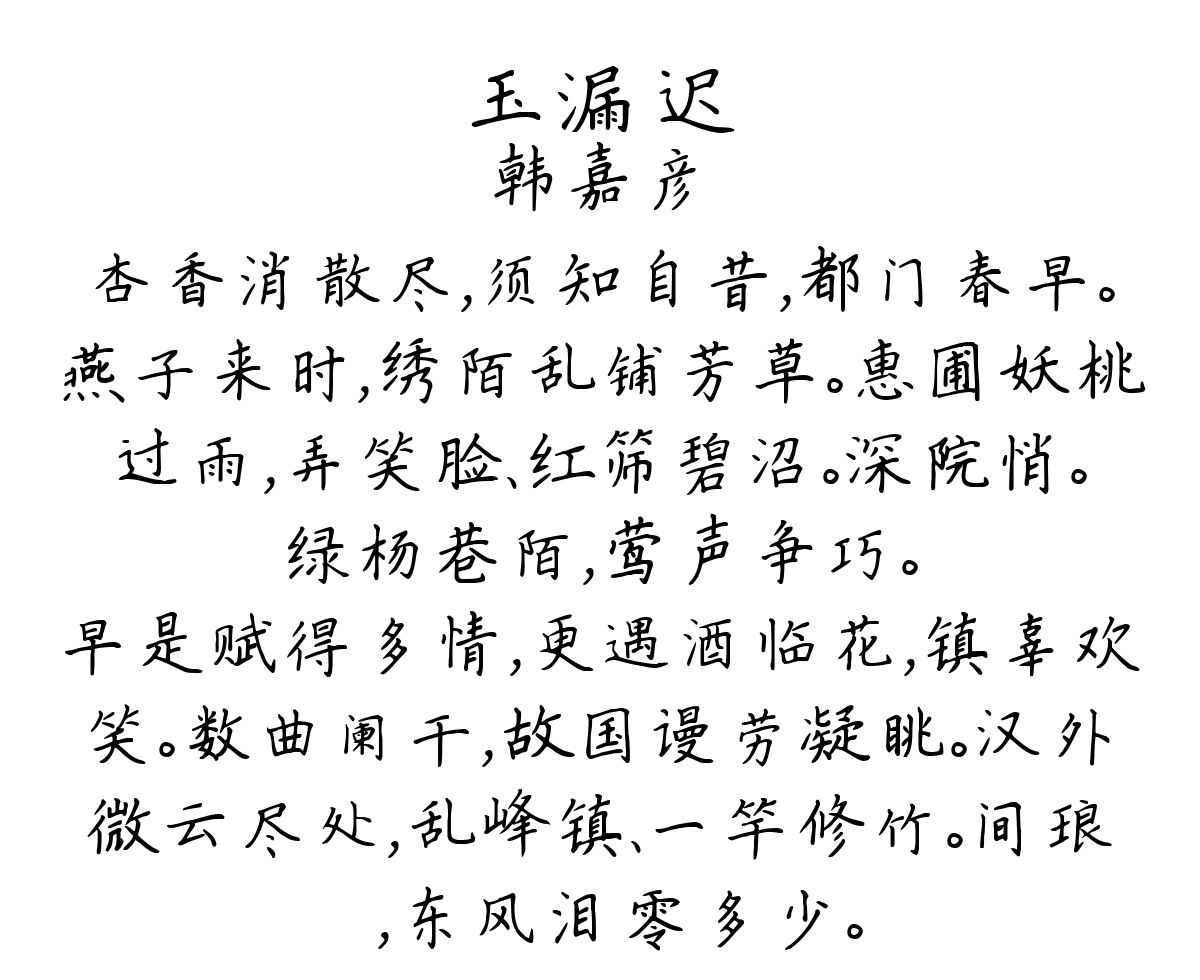 玉漏迟
韩嘉彦
杏香消散尽,须知自昔,都门春早。
燕子来时,绣陌乱铺芳草。惠圃妖桃
过雨,弄笑脸、红筛碧沼。深院悄。
绿杨巷陌,莺声争巧。
早是赋得多情,更遇酒临花,镇辜欢
笑。数曲阑干,故国谩劳凝眺。汉外
微云尽处,乱峰镇、一竿修竹。间琅
,东风泪零多少。